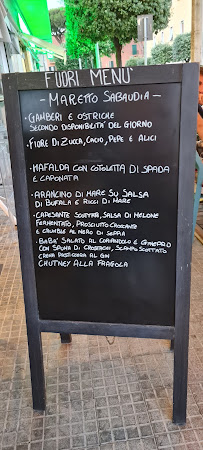 FUORI MENU'
- MARETTO SABAUDIA -
- GAMBERI E OSTRICHE
SECONDO DISPONIBILITA' DEL GIORNO
- FIORE DI ZUCCA, CACIO, PEPE E ALICI
- MAFALDA CON COTOLETTA DI SPADA
E CAPONATA
- ARANCINO DI MARE SU SALSA
DI BUFALA E RICCI DI MARE
- CAPESANTE SCOTTATA, SALSA DI MELONE
FERMENTATO, PROSCIUTTO CROCCANTE
E CRUMBLE AL NERO DI SEPPIA
- BABA' SALATO AL CORIANDOLO E GINEPRO
CON SALSA DI CROSTACEI, SCAMPO SCOTTATO
CREMA PASTICCERA AL GIN
CHUTNEY ALLA FRAGOLA